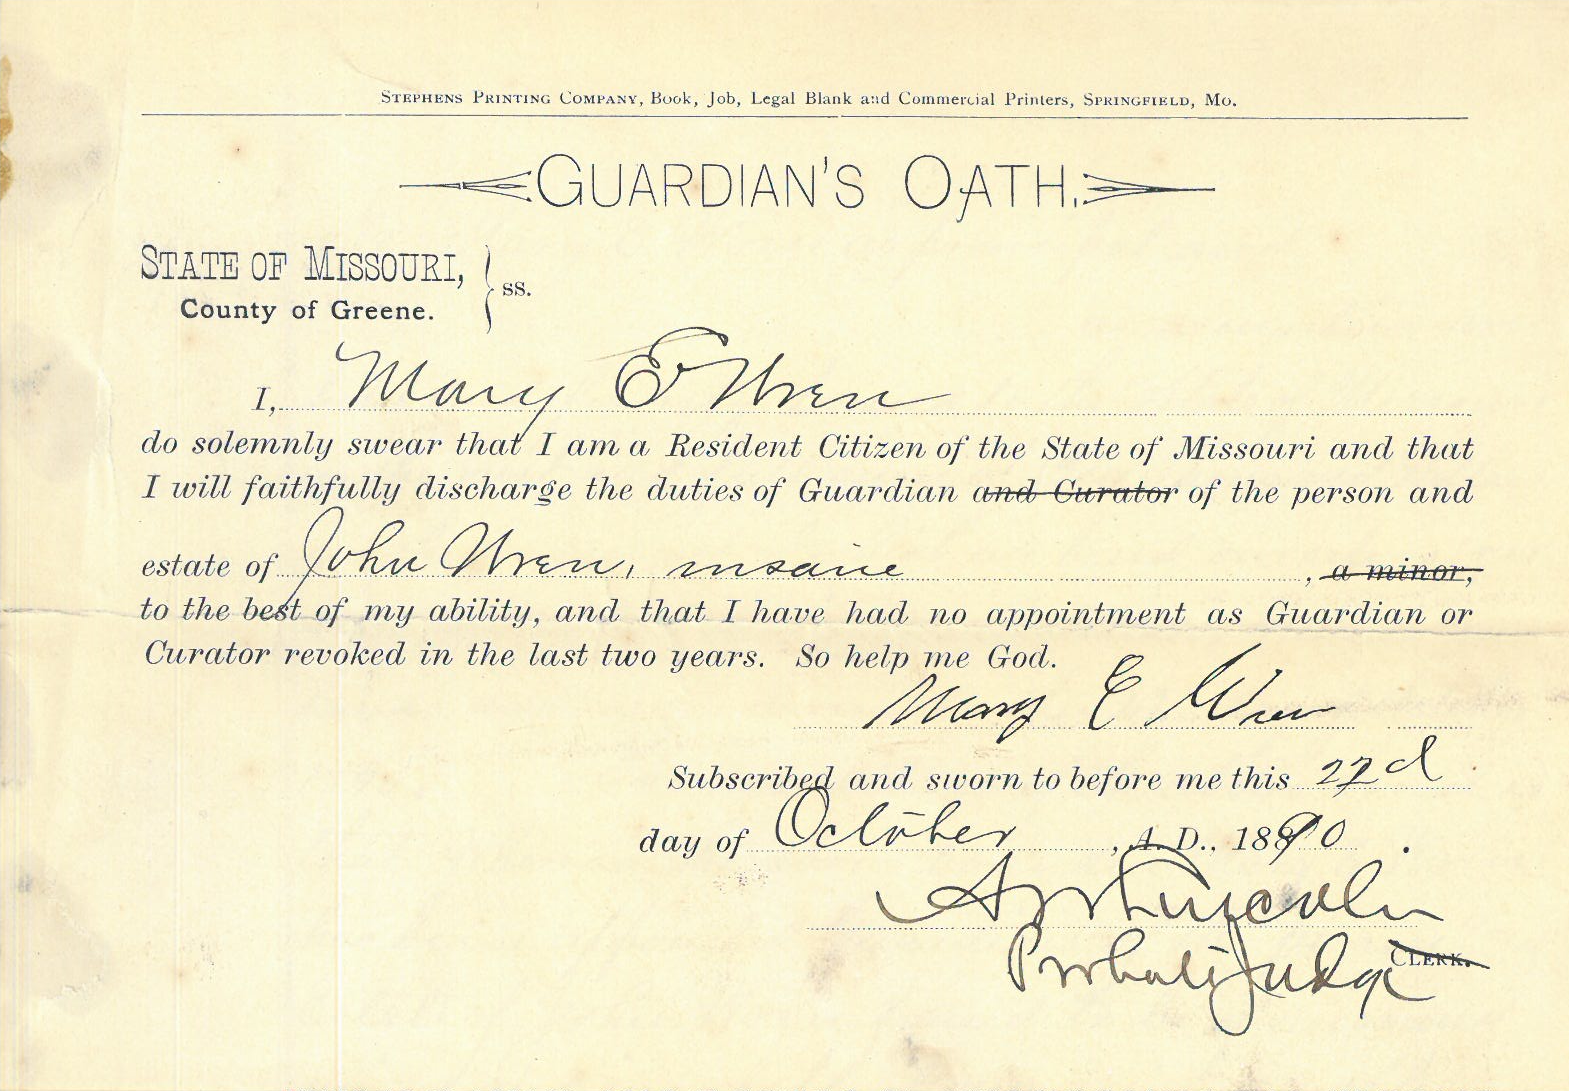 STEPHENS PRINTING COMPANY, Book, Job, Legal Blank and Commercial Printers, SPRINGFIELD, MO.
GUARDIAN'S OATH.
STATE OF MISSOURI,
County of Greene. } ss.
I, Mary E Wren
do solemnly swear that I am a Resident Citizen of the State of Missouri and that
I will faithfully discharge the duties of Guardian and Curator of the person and
estate of John Wren, insane , a minor,
to the best of my ability, and that I have had no appointment as Guardian or
Curator revoked in the last two years. So help me God.
Mary E Wren
Subscribed and sworn to before me this 22d
day of October , A. D., 1890 .
Lincoln
Probate Judge CLERK.